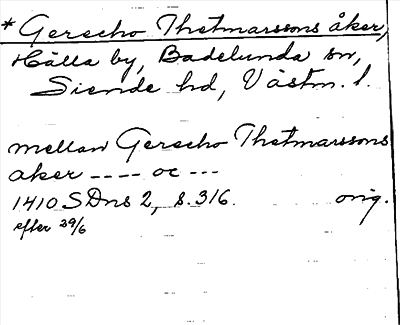 * Gerscho Thetmarssons åker,
Hälla by, Badelunda sn,
Siende hd, Västm. l.
mellan Gerscho Thetmarssons
aker ---- oc ---
1410 SDns 2, s. 316. orig.
efter 29/6